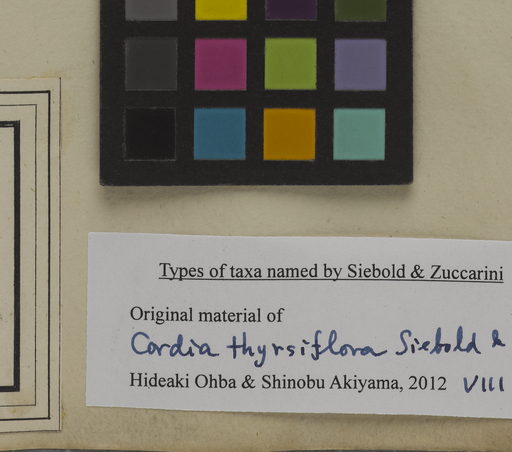 Types of taxa named by Siebold & Zuccarini
Original material of
Cordia thyrsiflora Siebold &
Hideaki Ohba & Shinobu Akiyama, 2012 VIII